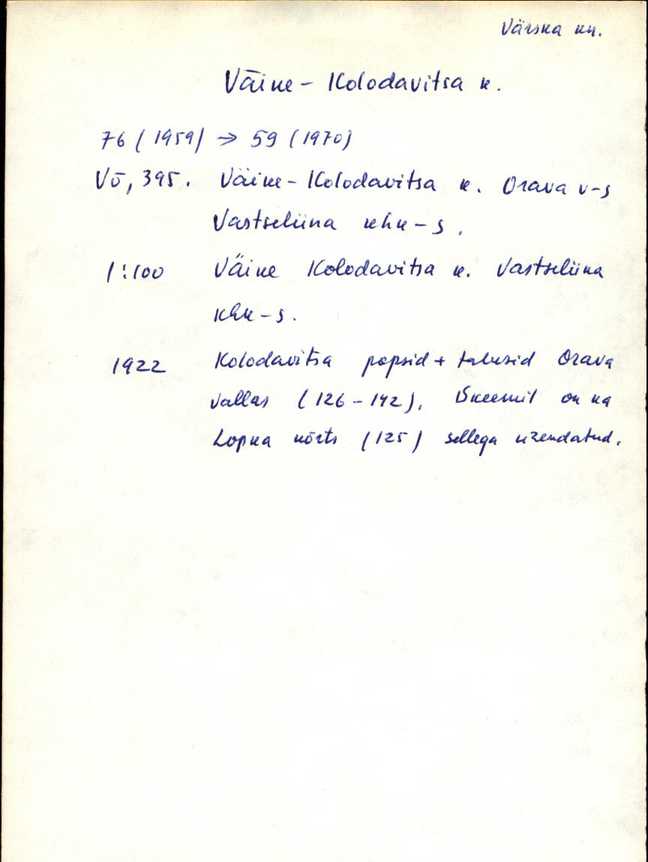 Värska kn.
Väike-Kolodavitsa k.
76 (1959) → 59 (1970)
Võ, 395. Väike-Kolodavitsa k. Orava v-s
Vastseliina khk-s.
1:100 Väike Kolodavitsa k. Vastseliina
khk-s.
1922 Kolodavitsa popsid + talusid Orava
vallas (126-142). Skeemil on ka
Lopka kõrts (125) sellega ühendatud.